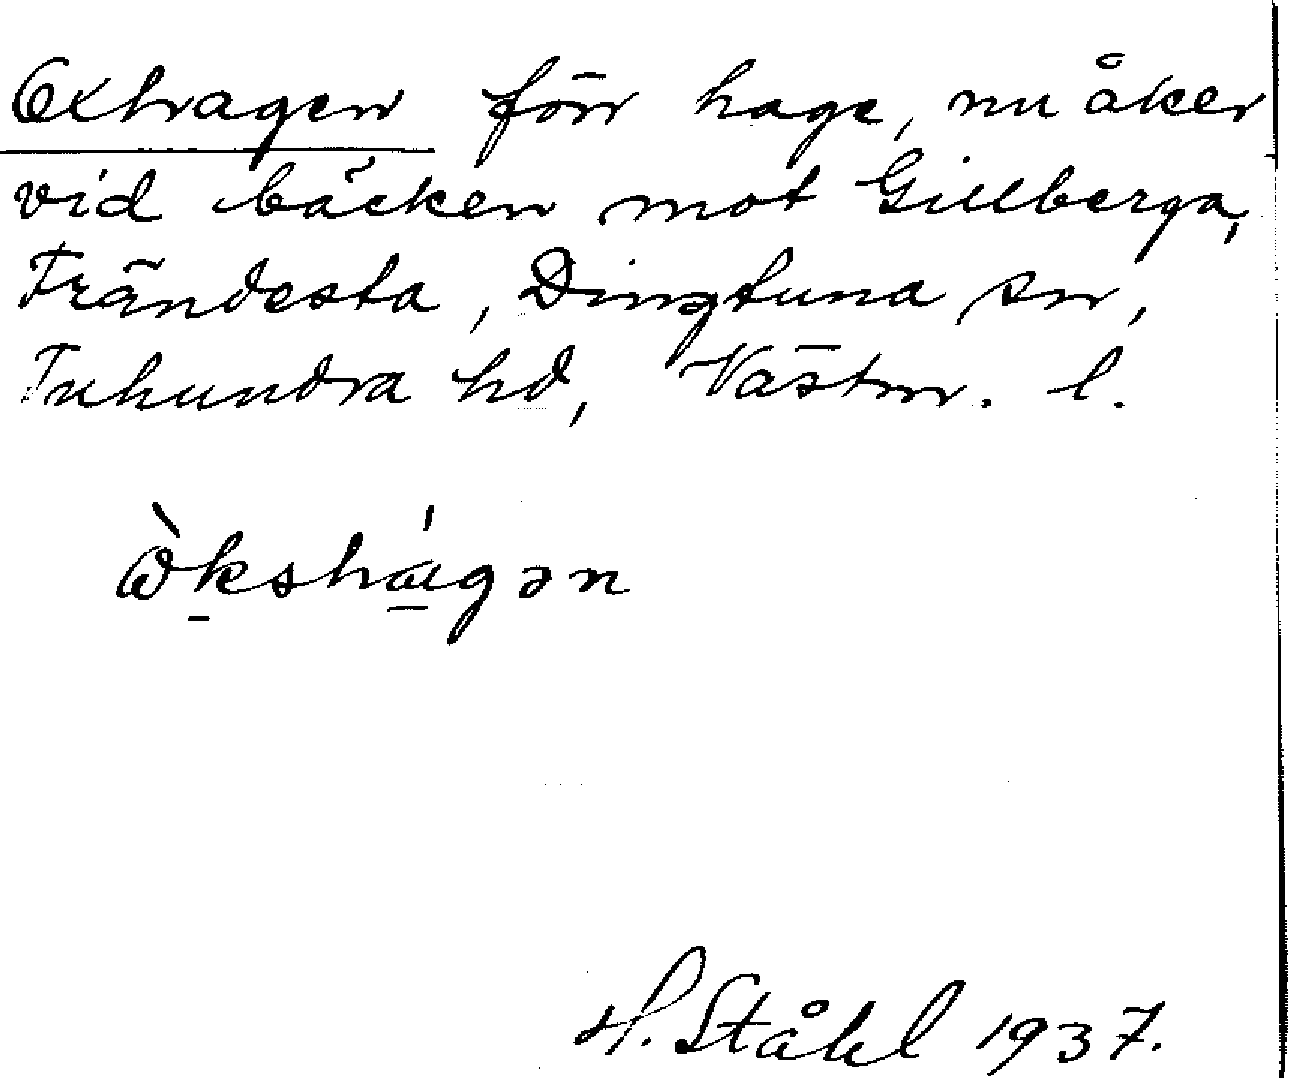 Oxhagen förr hage, nu åker
vid bäcken mot Gillberga,
Frändesta, Dingtuna sn,
Tuhundra hd, Västm. l.
H. Ståhl 1937.